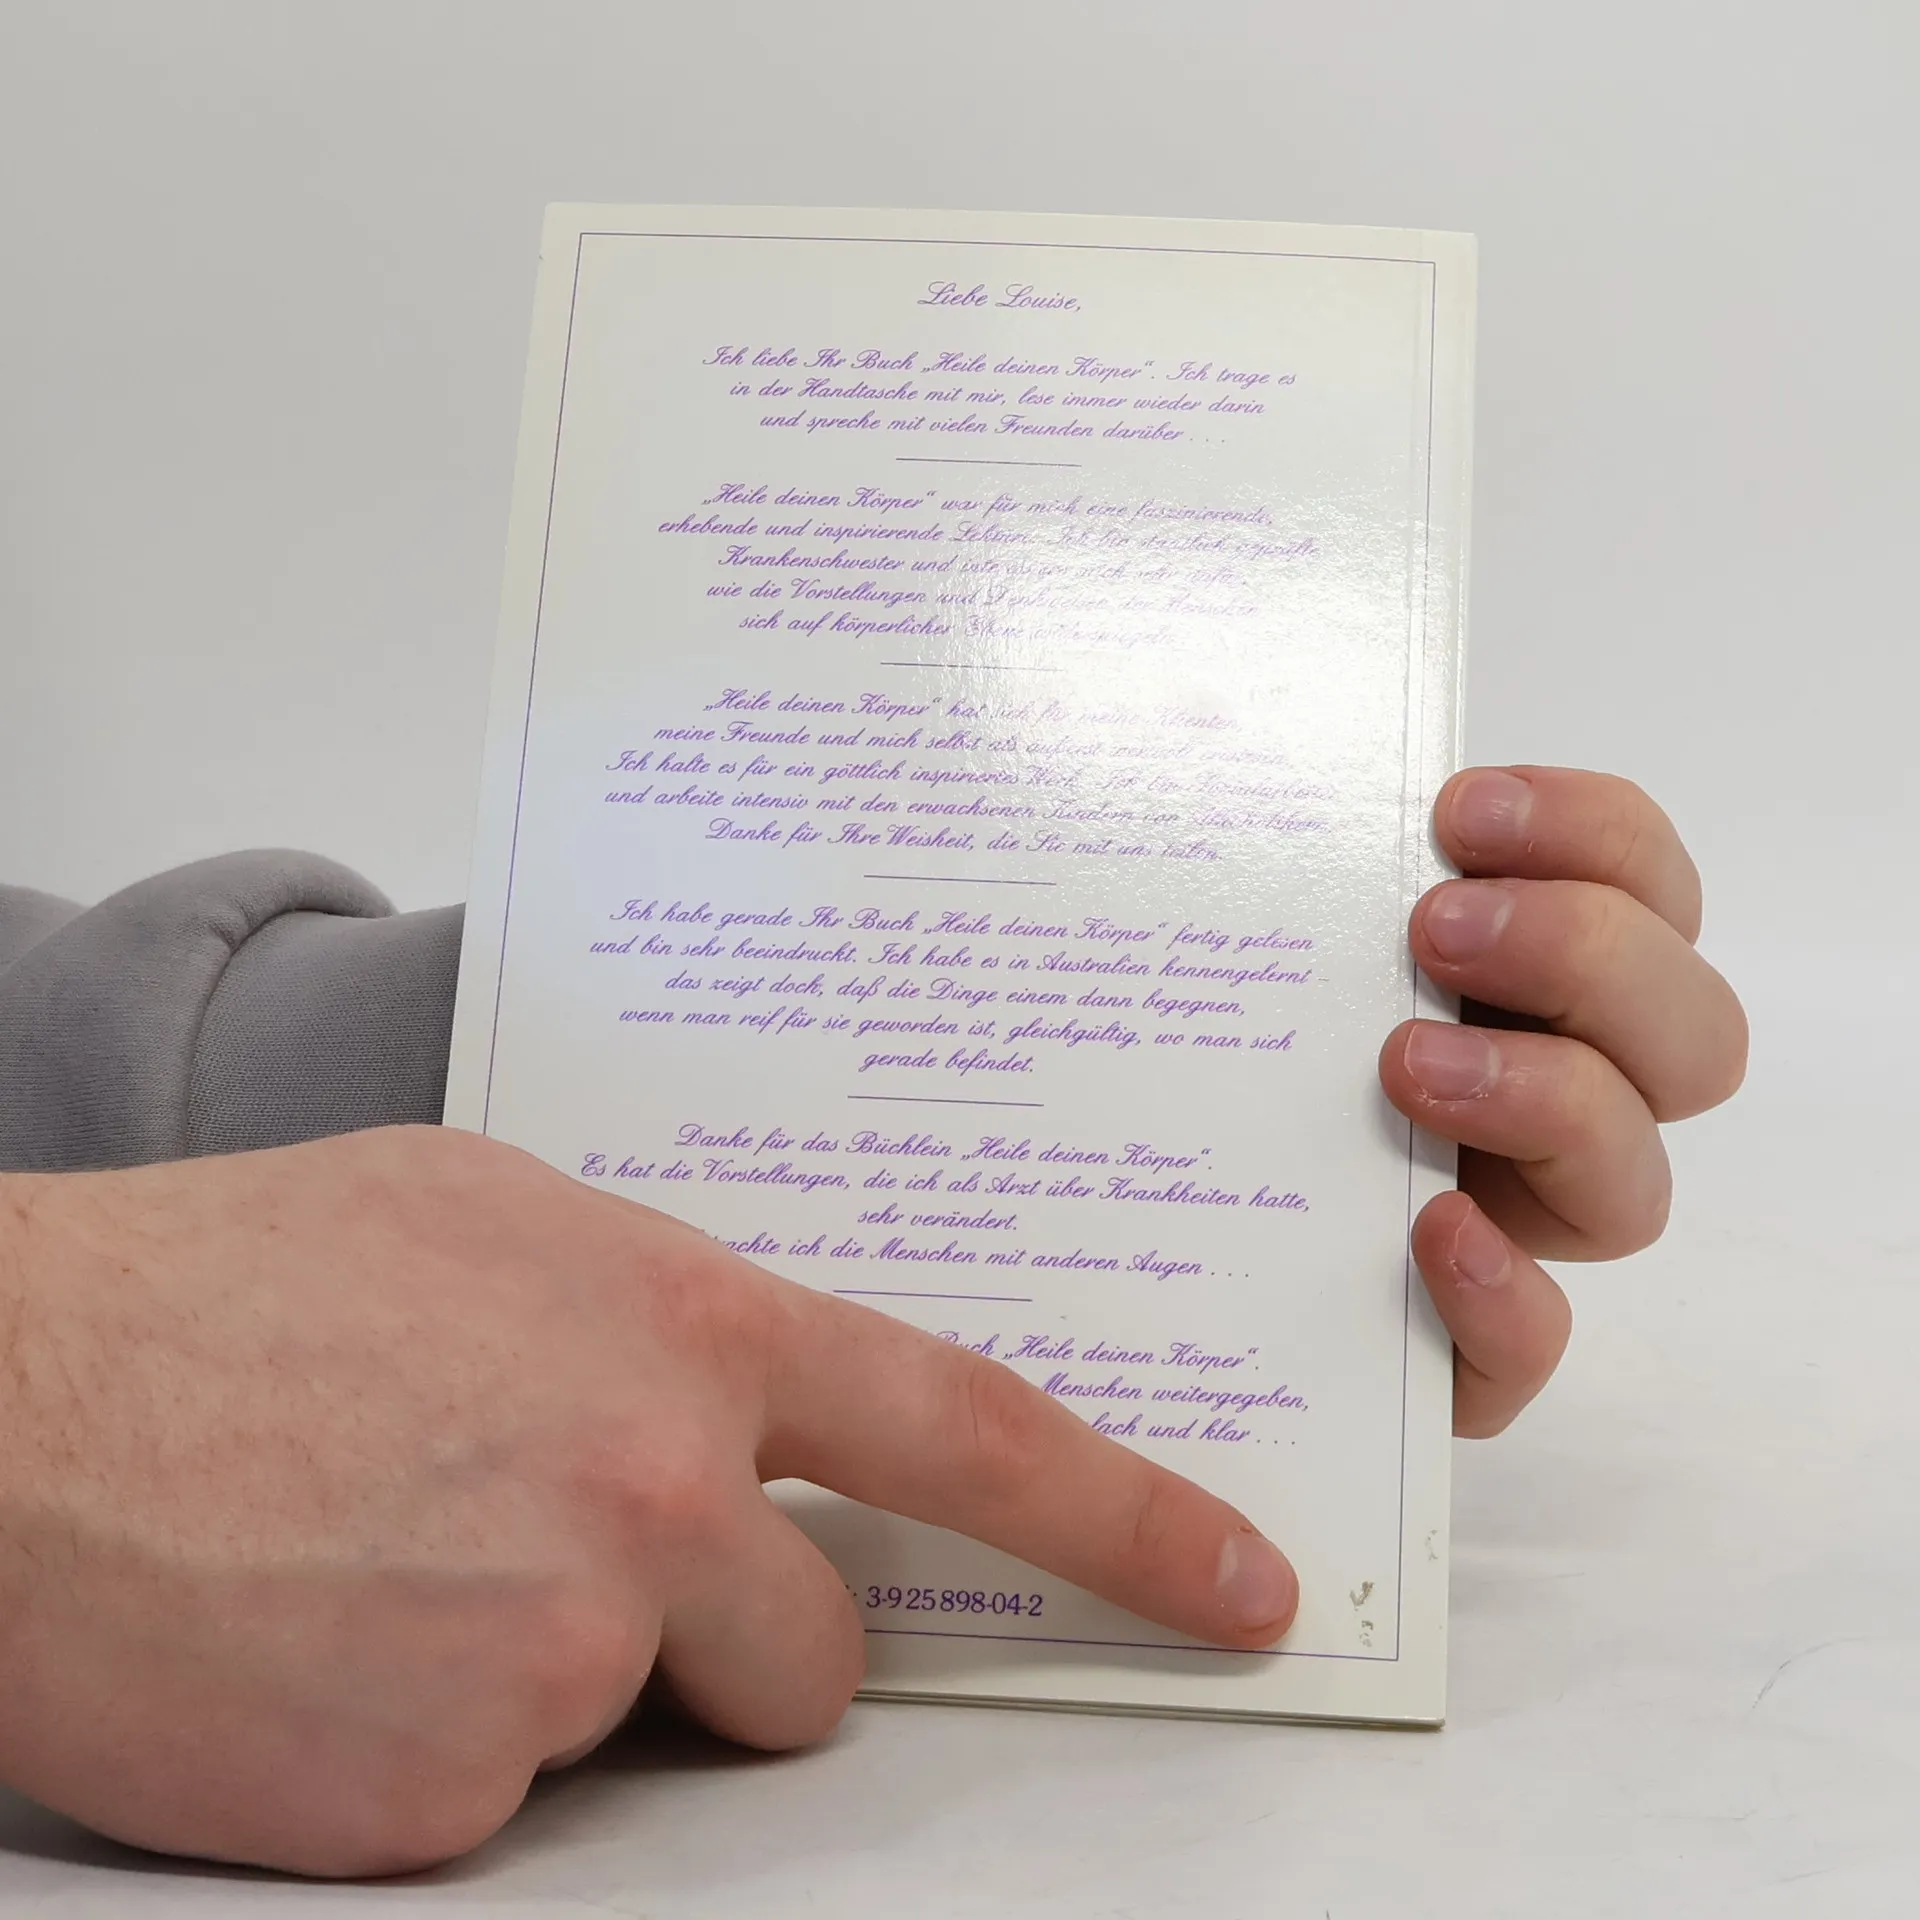 Liebe Louise,
Ich liebe Ihr Buch „Heile deinen Körper“. Ich trage es
in der Handtasche mit mir, lese immer wieder darin
und spreche mit vielen Freunden darüber . . .
„Heile deinen Körper“ war für mich eine faszinierende,
erhebende und inspirierende Lektüre. Ich bin staatlich geprüfte
Krankenschwester und
wie die Vorstellungen und Denkweisen der Menschen
sich auf körperlicher Ebene widerspiegeln.
„Heile deinen Körper“ hat sich für meine Klienten,
meine Freunde und mich selbst als äußerst wertvoll erwiesen.
Ich halte es für ein göttlich inspiriertes Werk. Ich bin
und arbeite intensiv mit den erwachsenen Kindern von
Danke für Ihre Weisheit, die Sie mit uns teilen.
Ich habe gerade Ihr Buch „Heile deinen Körper“ fertig gelesen
und bin sehr beeindruckt. Ich habe es in Australien kennengelernt –
das zeigt doch, daß die Dinge einem dann begegnen,
wenn man reif für sie geworden ist, gleichgültig, wo man sich
gerade befindet.
Danke für das Büchlein „Heile deinen Körper“.
Es hat die Vorstellungen, die ich als Arzt über Krankheiten hatte,
sehr verändert.
ich die Menschen mit anderen Augen . . .
Buch „Heile deinen Körper“.
Menschen weitergegeben,
und klar . . .
3-925898-04-2